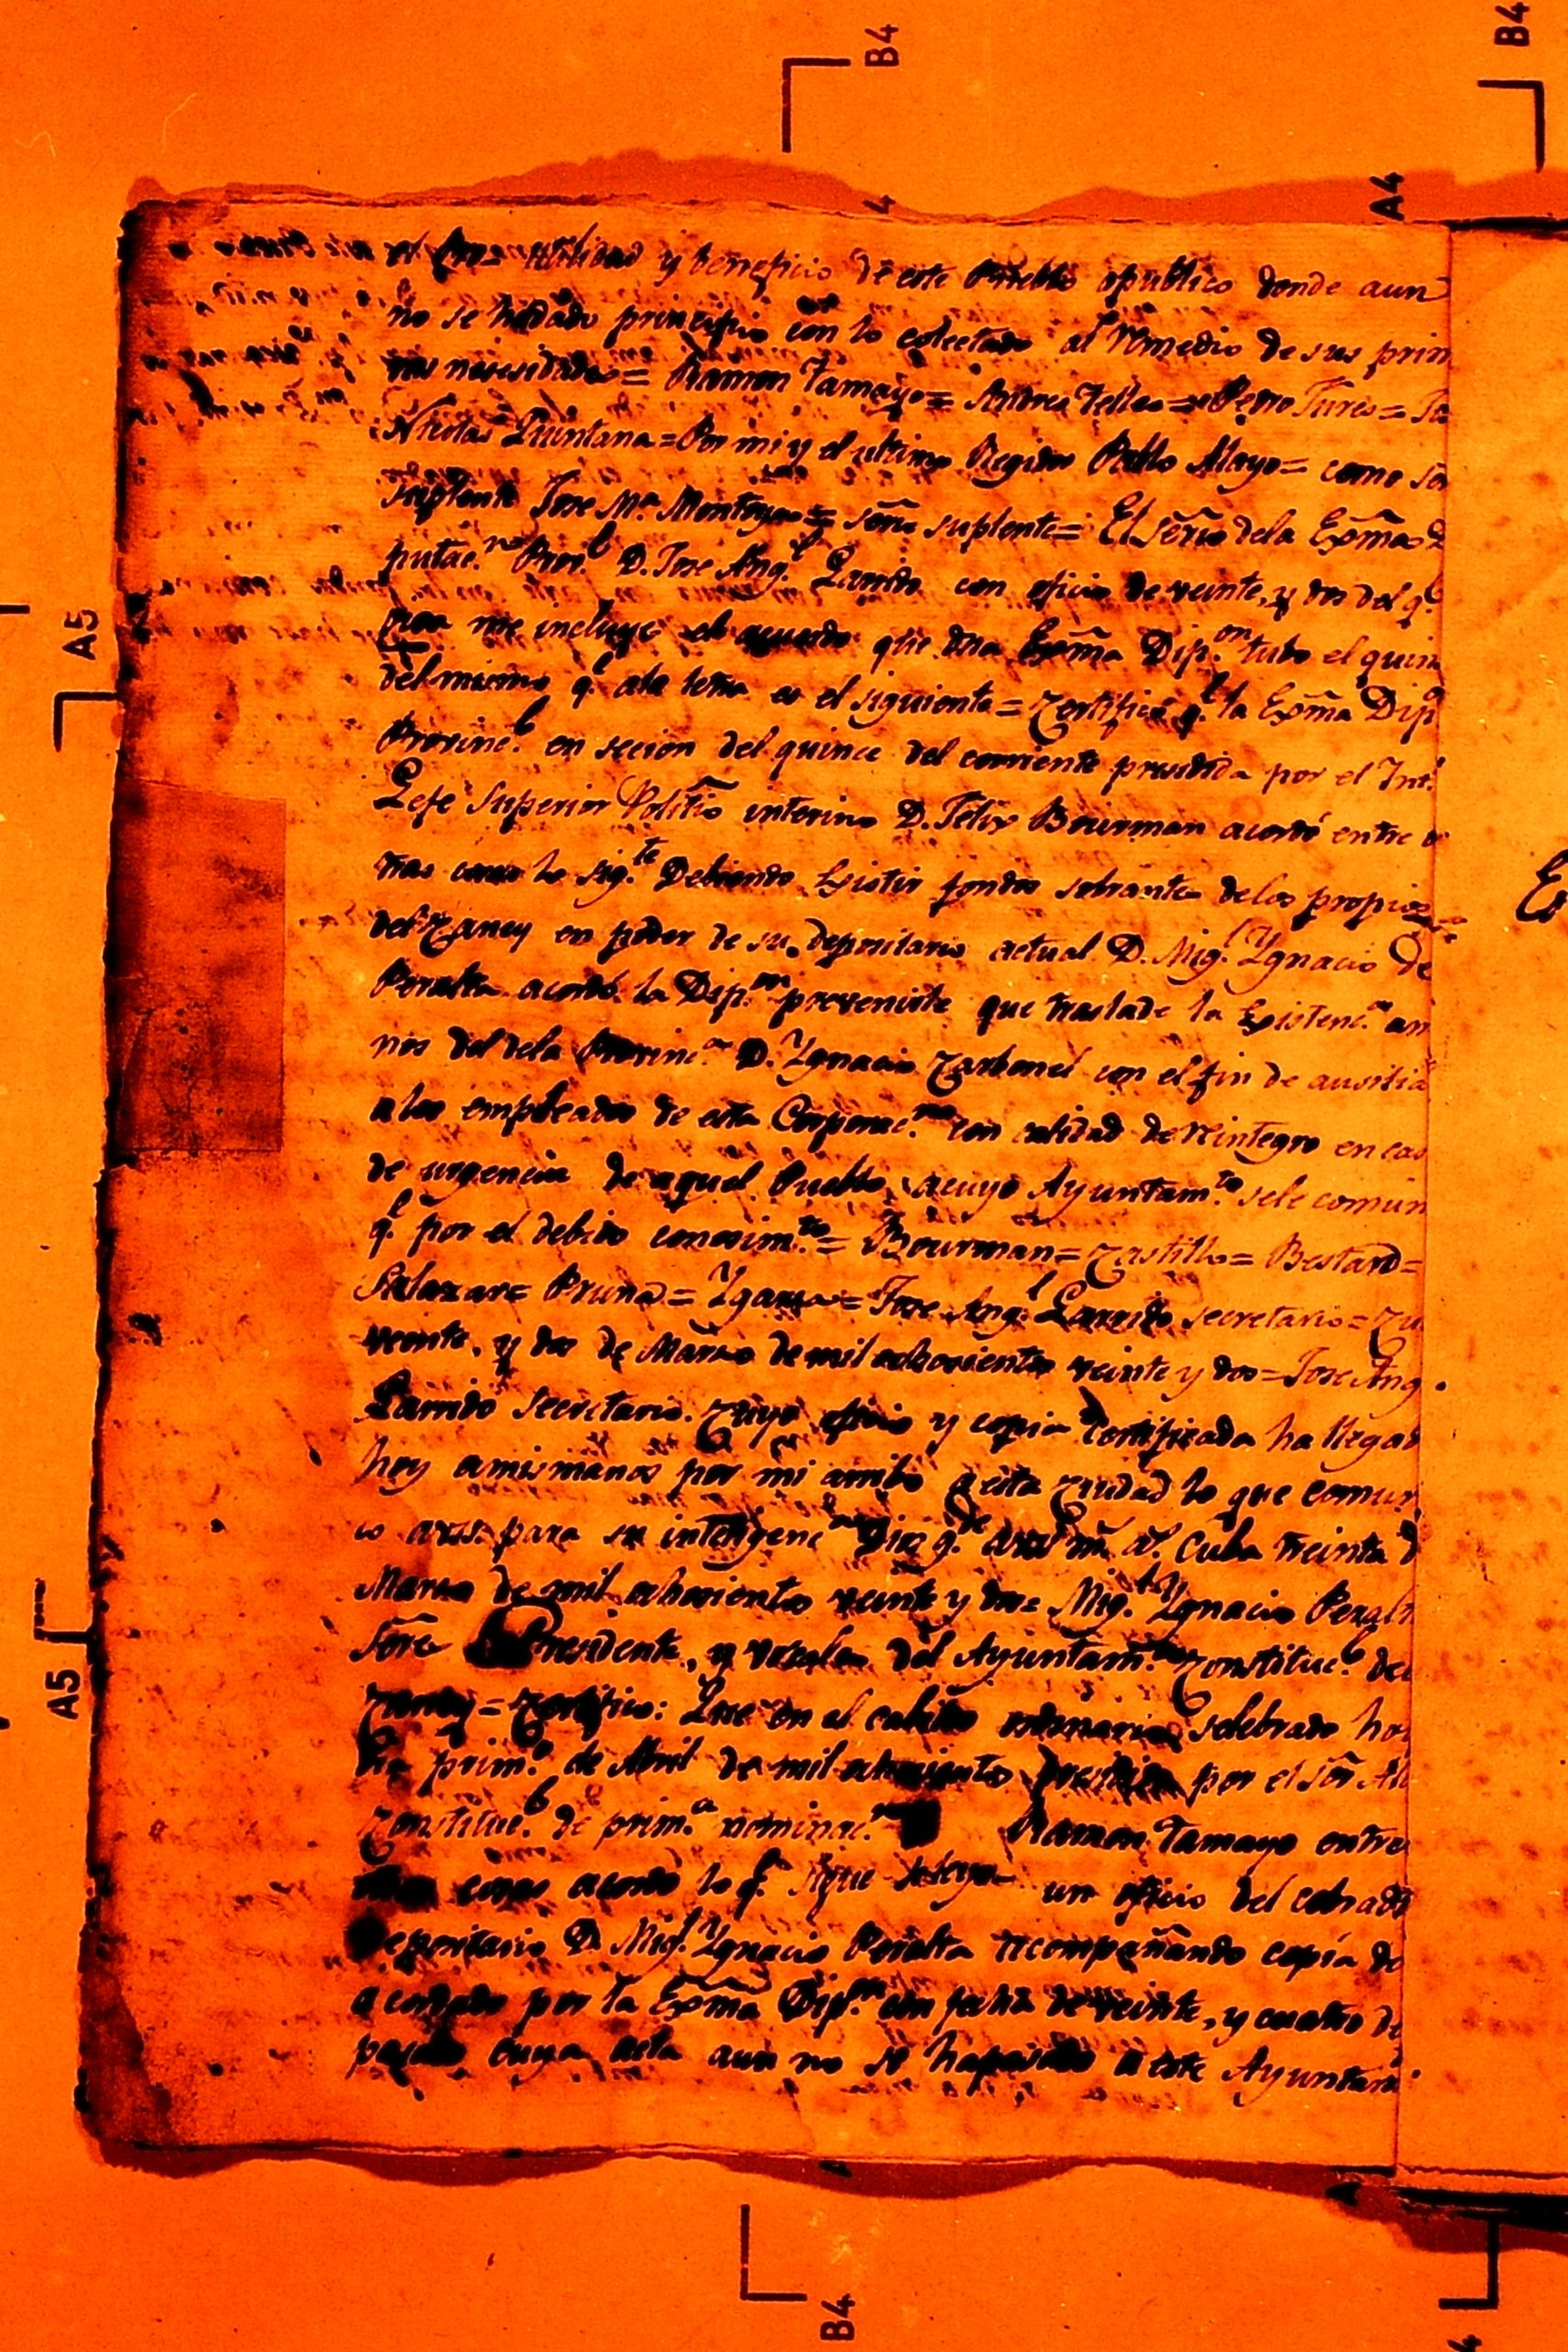 utilidad y beneficio de este Pueblo o publico donde aun
no se ha dado principio con lo colectado al remedio de sus prim
ras nesesidades = Ramon Tamayo = Andres Telles = Pedro Tures = Jo
Nicolas Quintana = Por mi y el ultimo Regidor Pablo Mayo = como
suplente Jose Ma. Montoya = serio suplente = El serio dela Exma D
putac.n Prov.l D. Jose Ang.l Garrido con oficio de veinte, y dos del q.e
me incluye el acuerdo que dha Exma Dip.on tubo el quin
del mismo q.e ala letra es el siguiente = Certifico q.e la Exma Dip
Provinc.l en secion del quince del corriente presidida por el Int.
Gefe Superior Politico interino D. Felix Bourman acordó entre o
tras cosas lo sig.te Debiendo Existir fondos sobrantes delos propios
del Caney en poder de su depositario actual D. Mig.l Ygnacio de
Peralta acordó la Dip.on prevenirle que traslade la Existenc.a an
nos del dela Provinc.a D. Ygnacio Carbonel con el fin de ausilia
alos empleados de esta Corporac.on con calidad de reintegro en cas
de urgencia de aquel Pueblo, acuyo Ayuntam.to sele comun
q.e por el debido conosim.to = Bourman = Castillo = Bestard =
Salazar = Pruna = Ygarza = Jose Ang.l Garrido secretario = Cu
veinte, y dos de Marzo de mil ochosientos veinte y dos = Jose Ang
Garrido Secretario. Cuyo oficio y copia Certificada ha llegad
hoy amis manos por mi arribo a esta Ciudad lo que comun
co para su inteligenc.a Dios g.e m.s a.s Cuba treinta d
Marzo de mil ochosientos veinte y dos = Mig.l Ygnacio Peralt
Sores Presidente, y vocales del Ayuntam.to Constituc.l del
Caney = Certifico: Que en el cabildo ordinario selebrado ho
dia prim.o de Abril de mil ochosientos por el Sor Al
Constituc.l de prim.a nominac.n Ramon Tamayo entre
cosas acordó lo q.e sigue un oficio del cobrado
Depositario D. Mig.l Ygnacio Peralta acompañando copia de
acordado por la Exma Dip.on con fecha de veinte, y cuatro de
pasado cuya acta aun no se ha pasado a este Ayuntam
A5
A5
B4
B4
A4
B4